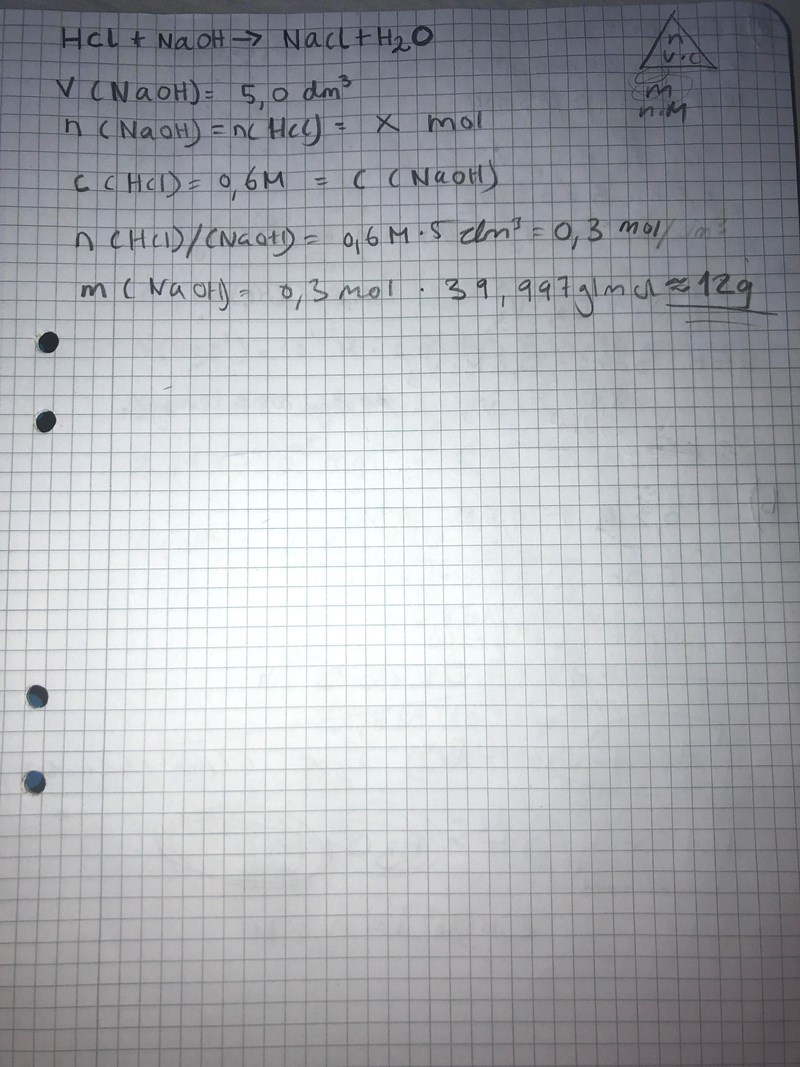 HCl + NaOH → NaCl + H₂O
n
V·c
V (NaOH) = 5,0 dm³
m
n·M
n (NaOH) = n(HCl) = x mol
c (HCl) = 0,6M = c (NaOH)
n (HCl)/(NaOH) = 0,6 M · 5 dm³ = 0,3 mol/
m (NaOH) = 0,3 mol · 39,997g/mol ≈ 12g